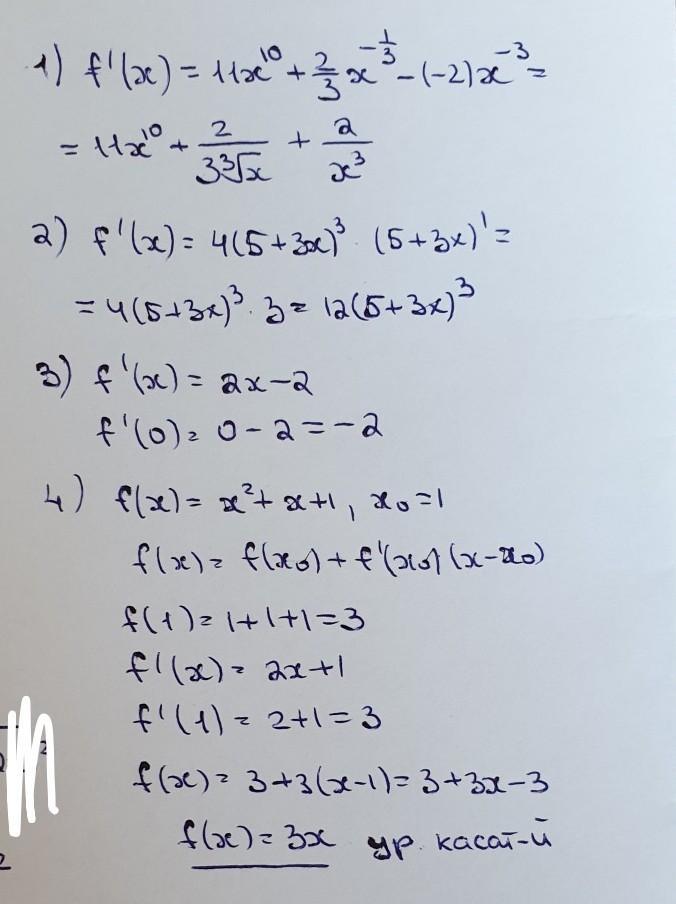 1) f'(x) = 11x¹⁰ + 2/3 x^(-1/3) - (-2)x⁻³ =
= 11x¹⁰ + 2/(3∛x) + 2/x³
2) f'(x) = 4(5+3x)³ · (5+3x)' =
= 4(5+3x)³ · 3 = 12(5+3x)³
3) f'(x) = 2x-2
f'(0) = 0 - 2 = -2
4) f(x) = x² + x + 1, x₀ = 1
f(x) = f(x₀) + f'(x₀)(x-x₀)
f(1) = 1+1+1 = 3
f'(x) = 2x+1
f'(1) = 2+1 = 3
f(x) = 3+3(x-1) = 3+3x-3
f(x) = 3x ур. касат-й